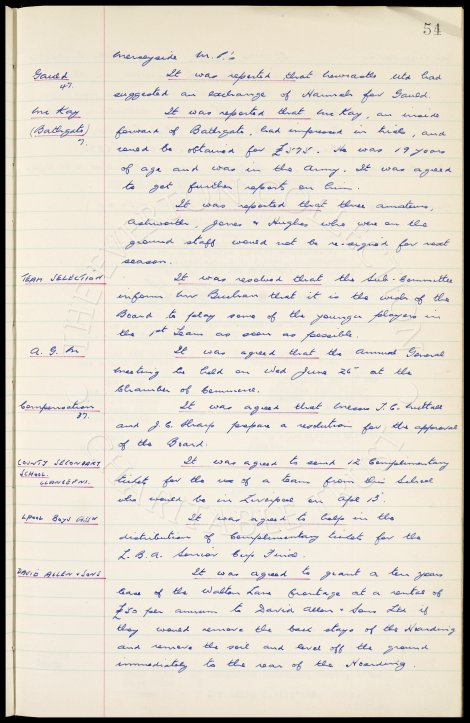 54
Merseyside M.P.'s
Gauld
47.
It was reported that Newcastle Utd had
suggested an exchange of Hannah for Gauld.
McKay
(Bathgate)
7.
It was reported that McKay, an inside
forward of Bathgate, had impressed in trials, and
could be obtained for £575. He was 19 years
of age and was in the Army. It was agreed
to get further reports on him.
It was reported that three amateurs,
Ashworth, Jones & Hughes who were on the
ground staff would not be re-signed for next
season.
TEAM SELECTION
It was resolved that the Sub-Committee
inform Mr Buchan that it is the wish of the
Board to play some of the younger players in
the 1st Team as soon as possible.
A.G.M
It was agreed that the Annual General
Meeting be held on Wed June 25th at the
Chamber of Commerce.
Compensation
37.
It was agreed that Messrs T.C. Nuttall
and J.C. Sharp prepare a resolution for the approval
of the Board.
COUNTY SECONDARY
SCHOOL.
LLANGEFNI.
It was agreed to send 12 Complimentary
tickets for the use of a team from this School
who would be in Liverpool on Apl 13.
LPOOL BOYS ASSN
It was agreed to help in the
distribution of Complimentary tickets for the
L.B.A. Senior Cup Finals.
DAVID ALLEN & SONS
It was agreed to grant a ten years
lease of the Walton Lane frontage at a rental of
£50 per annum to David Allen & Sons Ltd if
they would remove the back stays of the Hoarding
and remove the soil and level off the ground
immediately to the rear of the Hoarding.